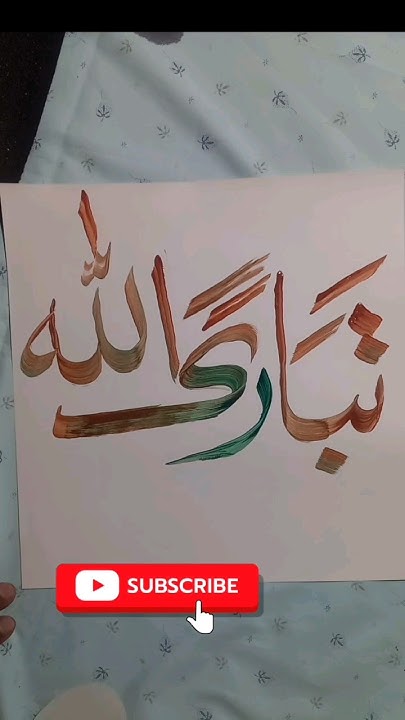 تَبَارَكَ اللّٰه
SUBSCRIBE